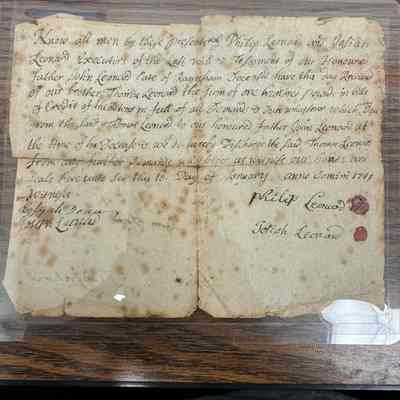 Know all men by these presents Philip Leonard and Josiah
Leonard Executors of the Last will & Testament of our Honoured
father John Leonard Late of Raynham Deceasd have this day Received
of our brother Thomas Leonard the sum of one hundred pounds in bills
of Credit of in full of all Demands whatsoever which
from the said Thomas Leonard to our honoured father John Leonard at
the time of his Decease we do hereby Discharge the said Thomas Leonard
from all further Demands as witness our hands and
seals hereunto Set this 16 Day of January anno Domini
Witness
Philip Leonard
Joseph
Josiah Leonard